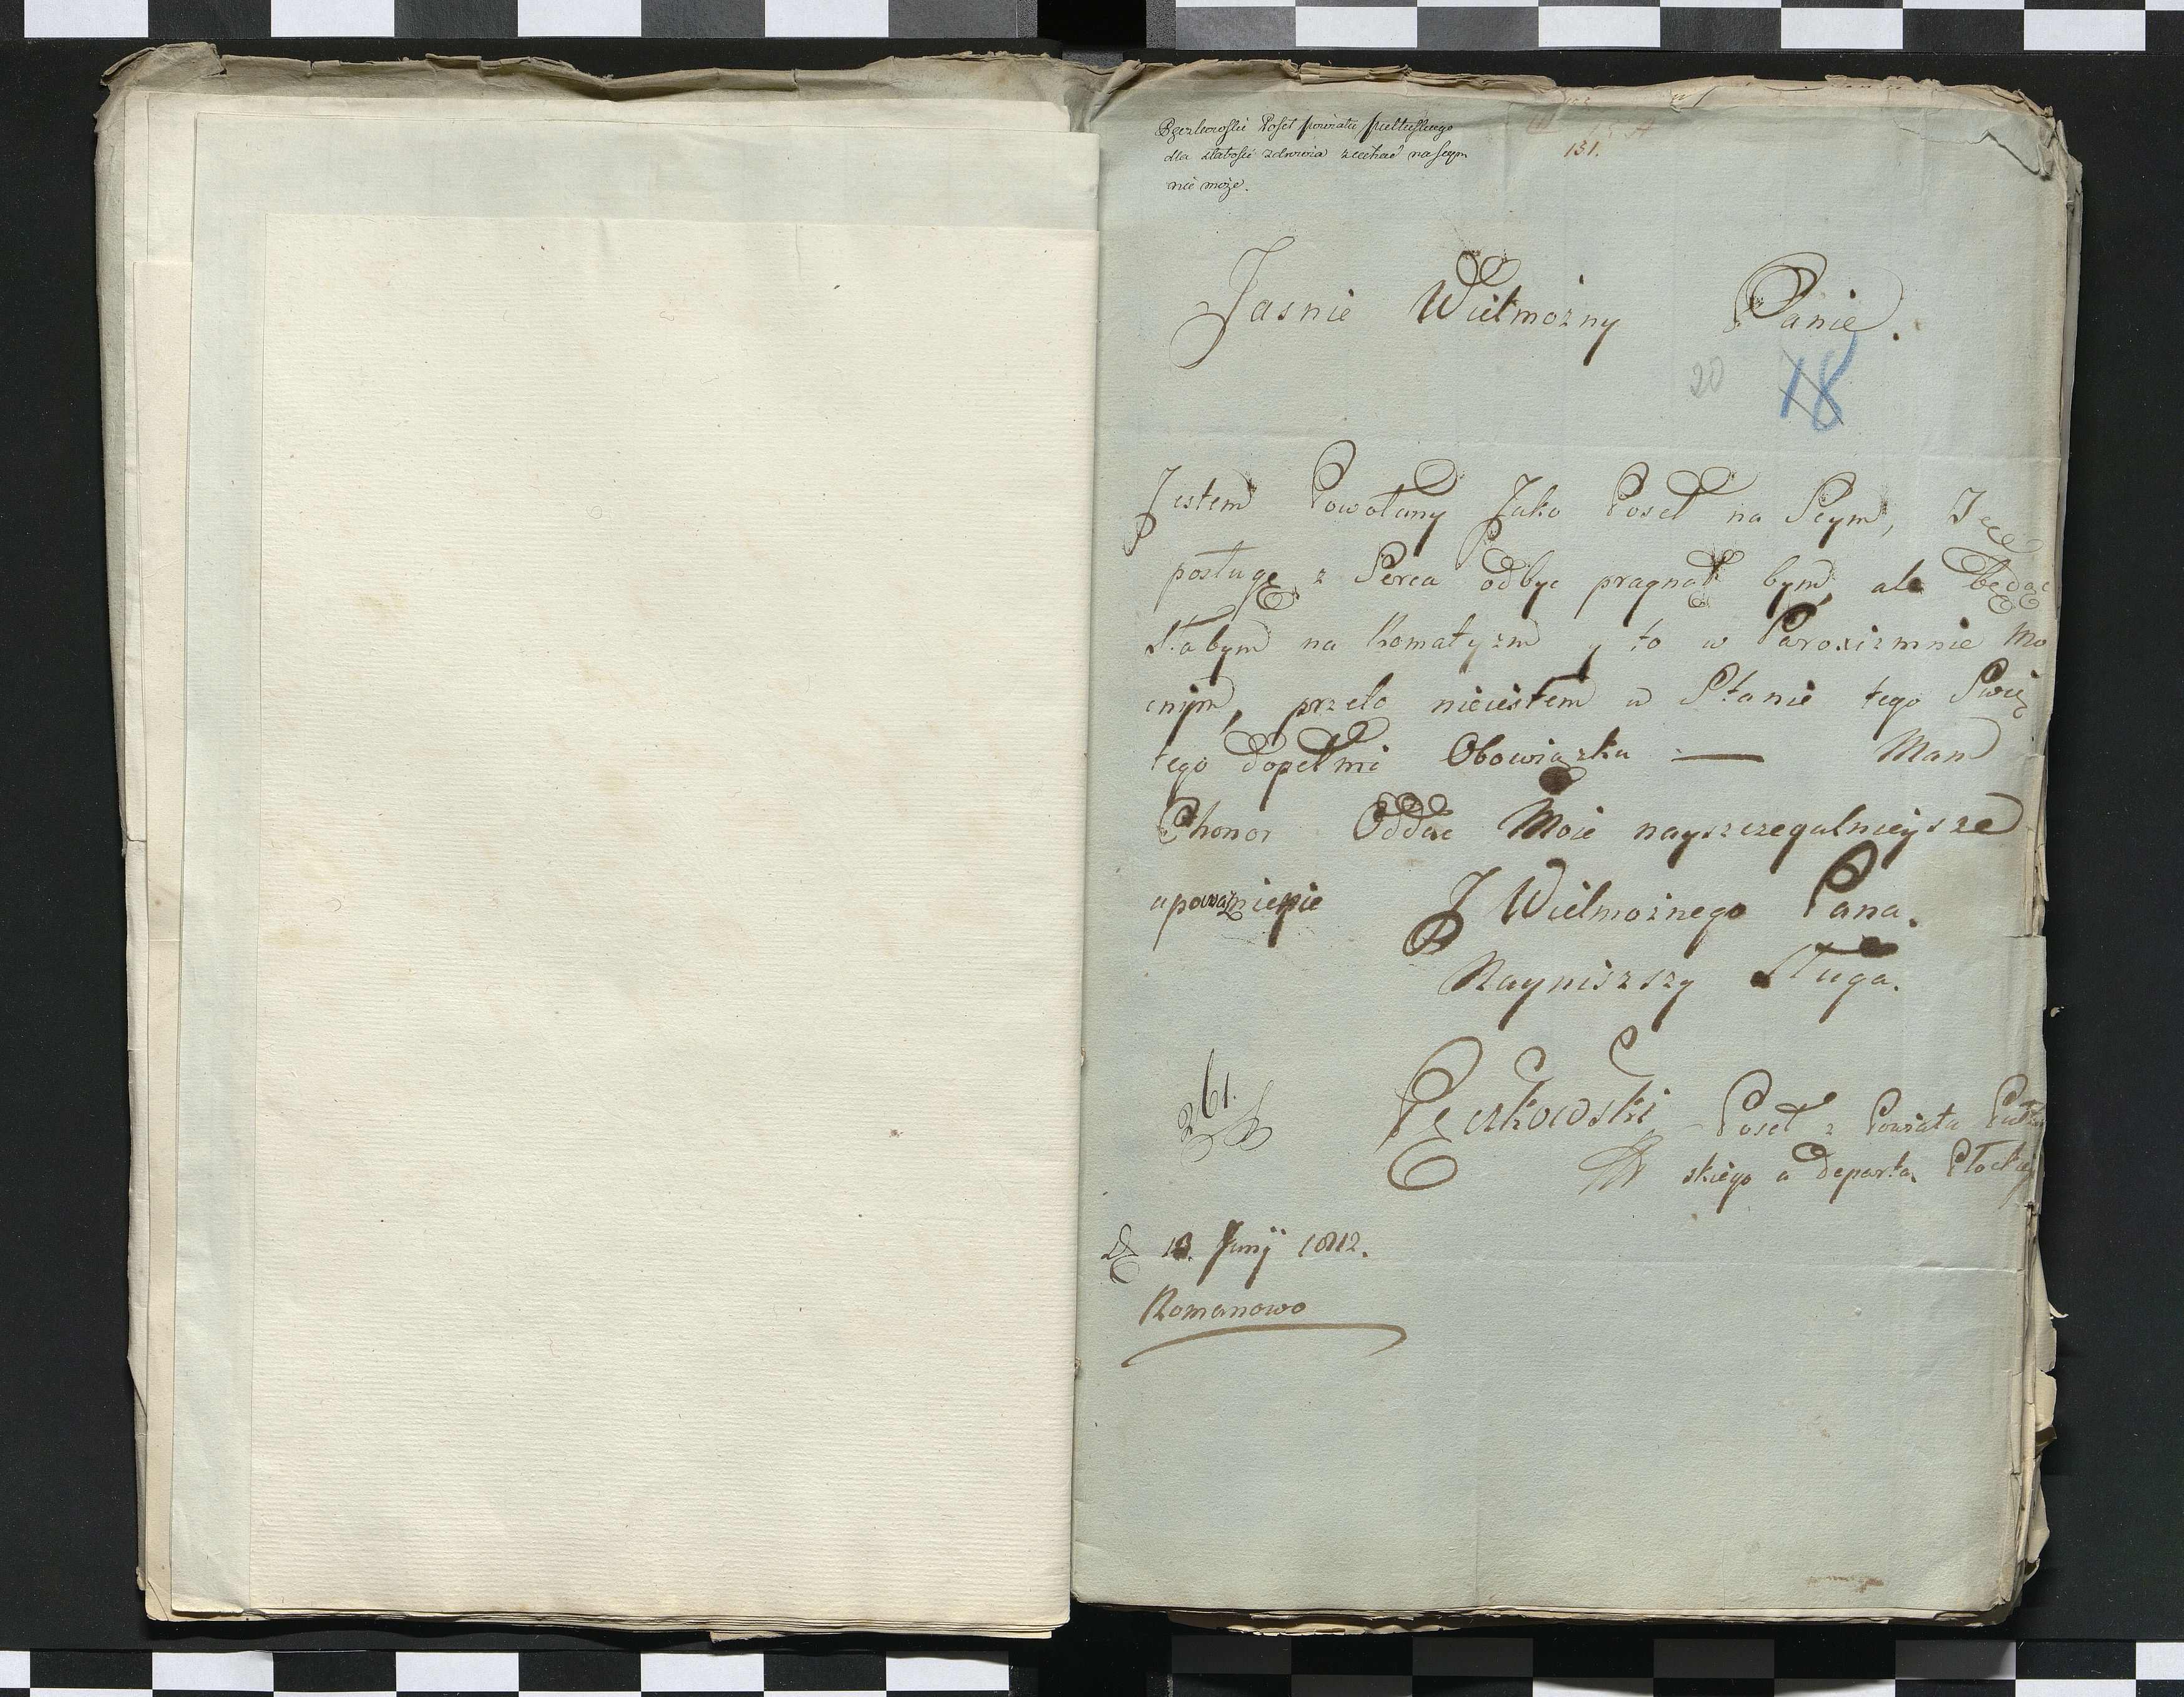 Pęczkowski Poseł powiatu pułtuskiego
dla słabości zdrowia ziechać na Seym
nie może.
131.
Jasnie Wielmozny Panie.
20 18
Jestem Powołany Jako Poseł na Seym,
posługę z Serca odbyc pragnął bym, ale będąc
Słabym na Romatyzm y to w Paroxizmnie Mo
cnym, przeto nieiestem w Stanie tego Swię
tego dopełnić Obowiązku — Mam
Chonor Oddac Moie nayszczegulnieysze
upoważnienie J Wielmoznego Pana.
Naynizszy Sługa.
261.
Pęczkowski Poseł z Powiatu Pułtu
skiego a Departa. Płockieg
D 13. Junij 1812.
Romanowo